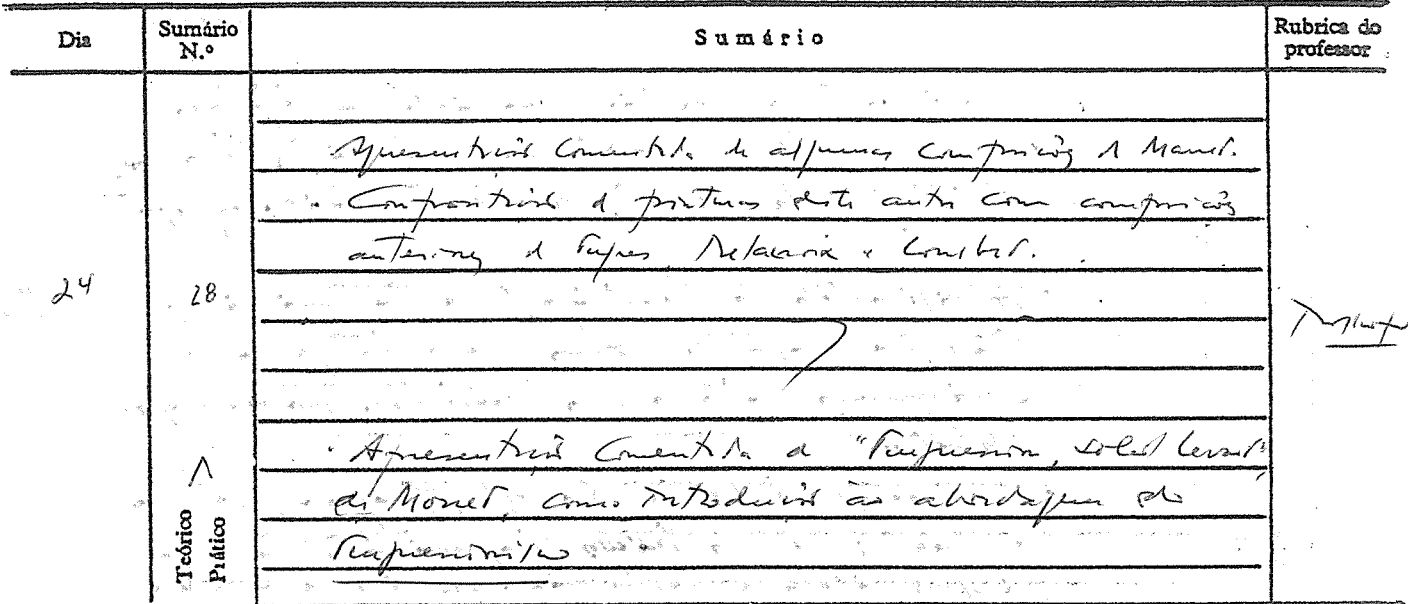 Dia
Sumário N.º
Sumário
Rubrica do professor
Apresentação Comentada de algumas composições de Manet.
. Confrontação de pinturas deste autor com composições
anteriores de Ingres, Delacroix e Courbet.
24
28
· Apresentação Comentada de "Impression, soleil levant",
de Monet, como introdução ao abordagem do
Impressionismo
Teórico
Prático